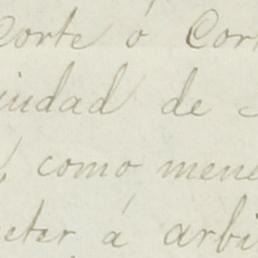 Corte ó Cort
iudad de
, como mene
eter á arbi